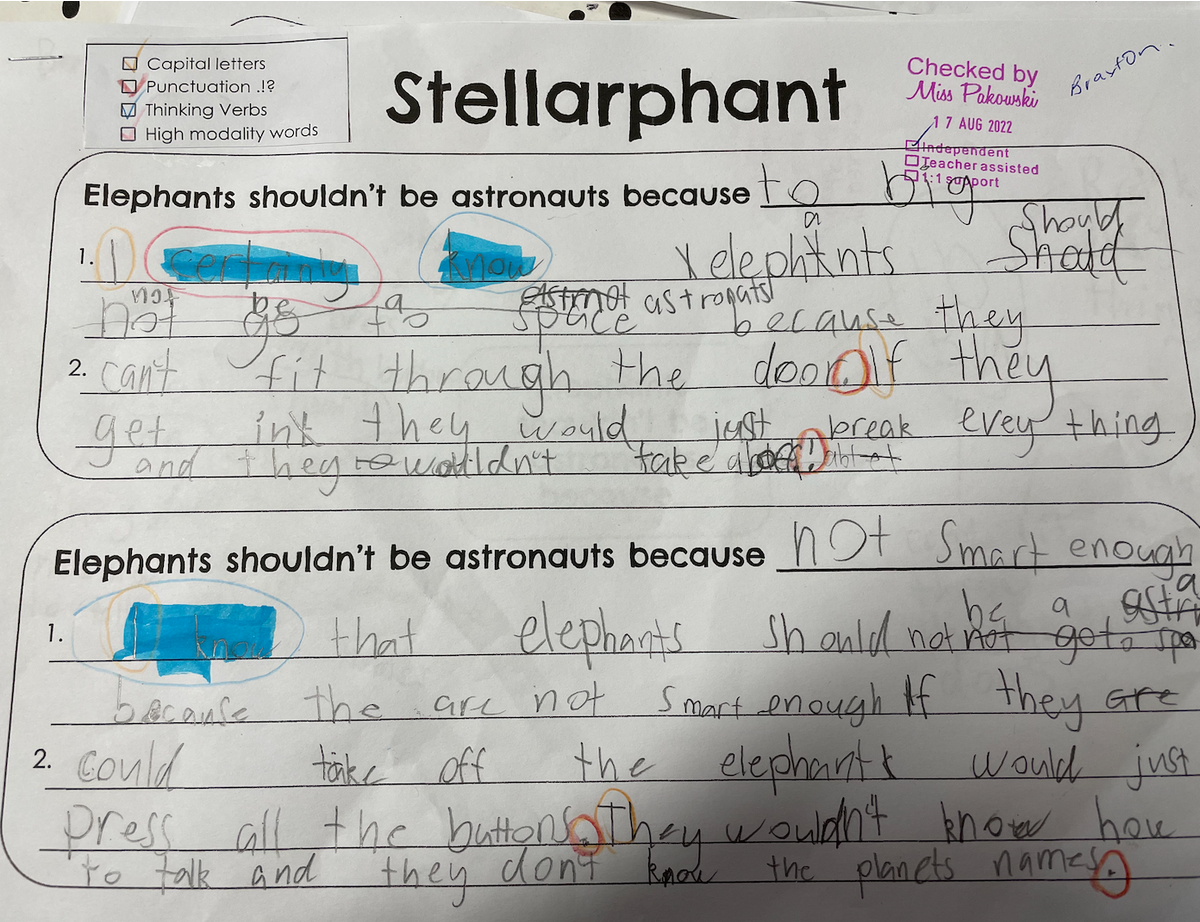 Capital letters
Punctuation .!?
Thinking Verbs
High modality words
Stellarphant
Checked by
Miss Pakowski
17 AUG 2022
Independent
Teacher assisted
1:1 support
Braxton.
Elephants shouldn't be astronauts because to big
1. I certainly know elephants should
not be a astronats because they
2. can't fit through the door. If they
get in they would just break evey thing
and they wouldn't take
Elephants shouldn't be astronauts because not smart enough
1. I know that elephants should not be a
because the are not smart enough If they are
2. could take off the elephants would just
press all the buttons. They wouldn't know how
to talk and they don't know the planets names.